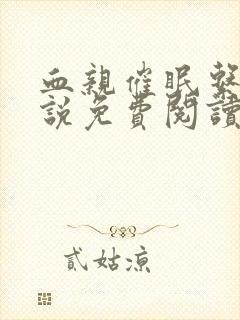 血親催眠繫
說免費閱讀
貳姑涼